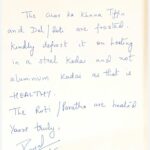 The Gias ka Khana Tiffin
and Dal/Roti are frosted.
Kindly deposit it on heating
in a steel Kadai and not
aluminum Kadai as that is
HEALTHY.
The Roti / Paratha are healed
Yours truly,